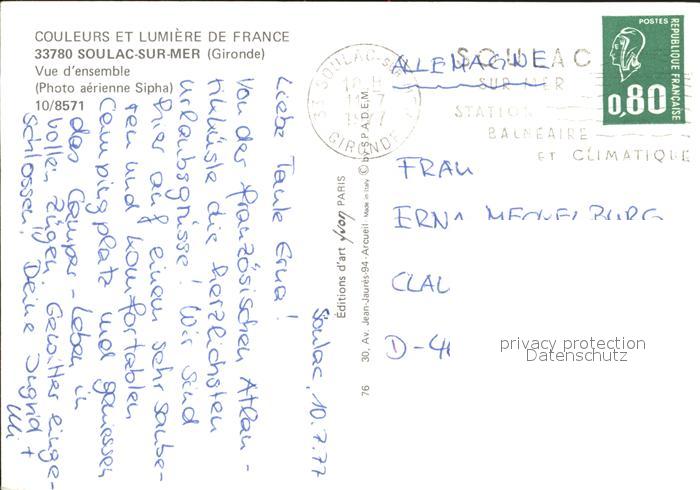 COULEURS ET LUMIÈRE DE FRANCE
33780 SOULAC-SUR-MER (Gironde)
Vue d'ensemble
(Photo aérienne Sipha)
10/8571
Soulac, 10.7.77
Liebe Tante Erna!
Von der französischen Atlan-
tikküste die herzlichsten
Urlaubsgrüsse! Wir sind
hier auf einem sehr saube-
ren und komfortablen
Campingplatz und geniessen
das Camper-Leben in
vollen Zügen, Gewitter einge-
schlossen. Deine Ingrid +
Uli
Éditions d'art Yvon PARIS
© by S.P.A.D.E.M.
30, Av. Jean-Jaurès-94-Arcueil - Made in Italy
76
33 SOULAC-SUR-MER
GIRONDE
SOULAC
SUR MER
STATION
BALNÉAIRE
ET CLIMATIQUE
POSTES
RÉPUBLIQUE FRANÇAISE
0,80
ALLEMAGNE
FRAU
ERNA
D-4
privacy protection
Datenschutz